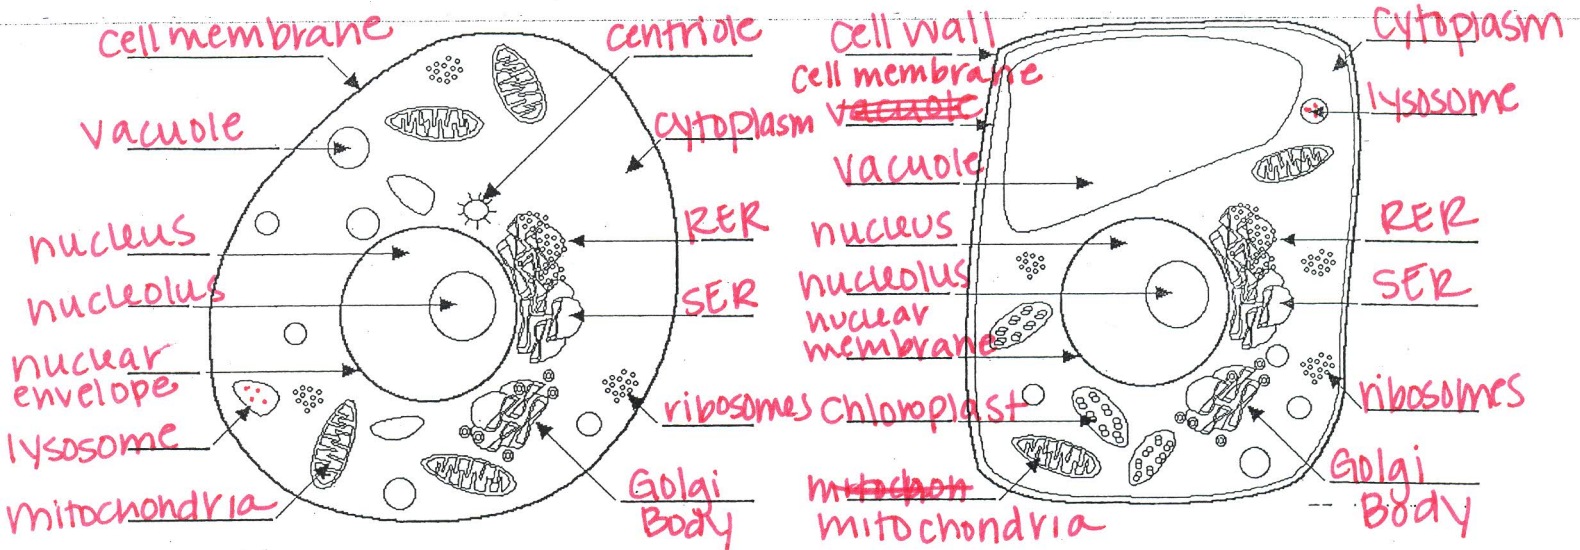 cell membrane
vacuole
nucleus
nucleolus
nuclear
envelope
lysosome
mitochondria
centriole
cytoplasm
RER
SER
ribosomes
Golgi
Body
cell wall
cell membrane
vacuole
vacuole
nucleus
nucleolus
nuclear
membrane
chloroplast
mitochon
mitochondria
cytoplasm
lysosome
RER
SER
ribosomes
Golgi
Body